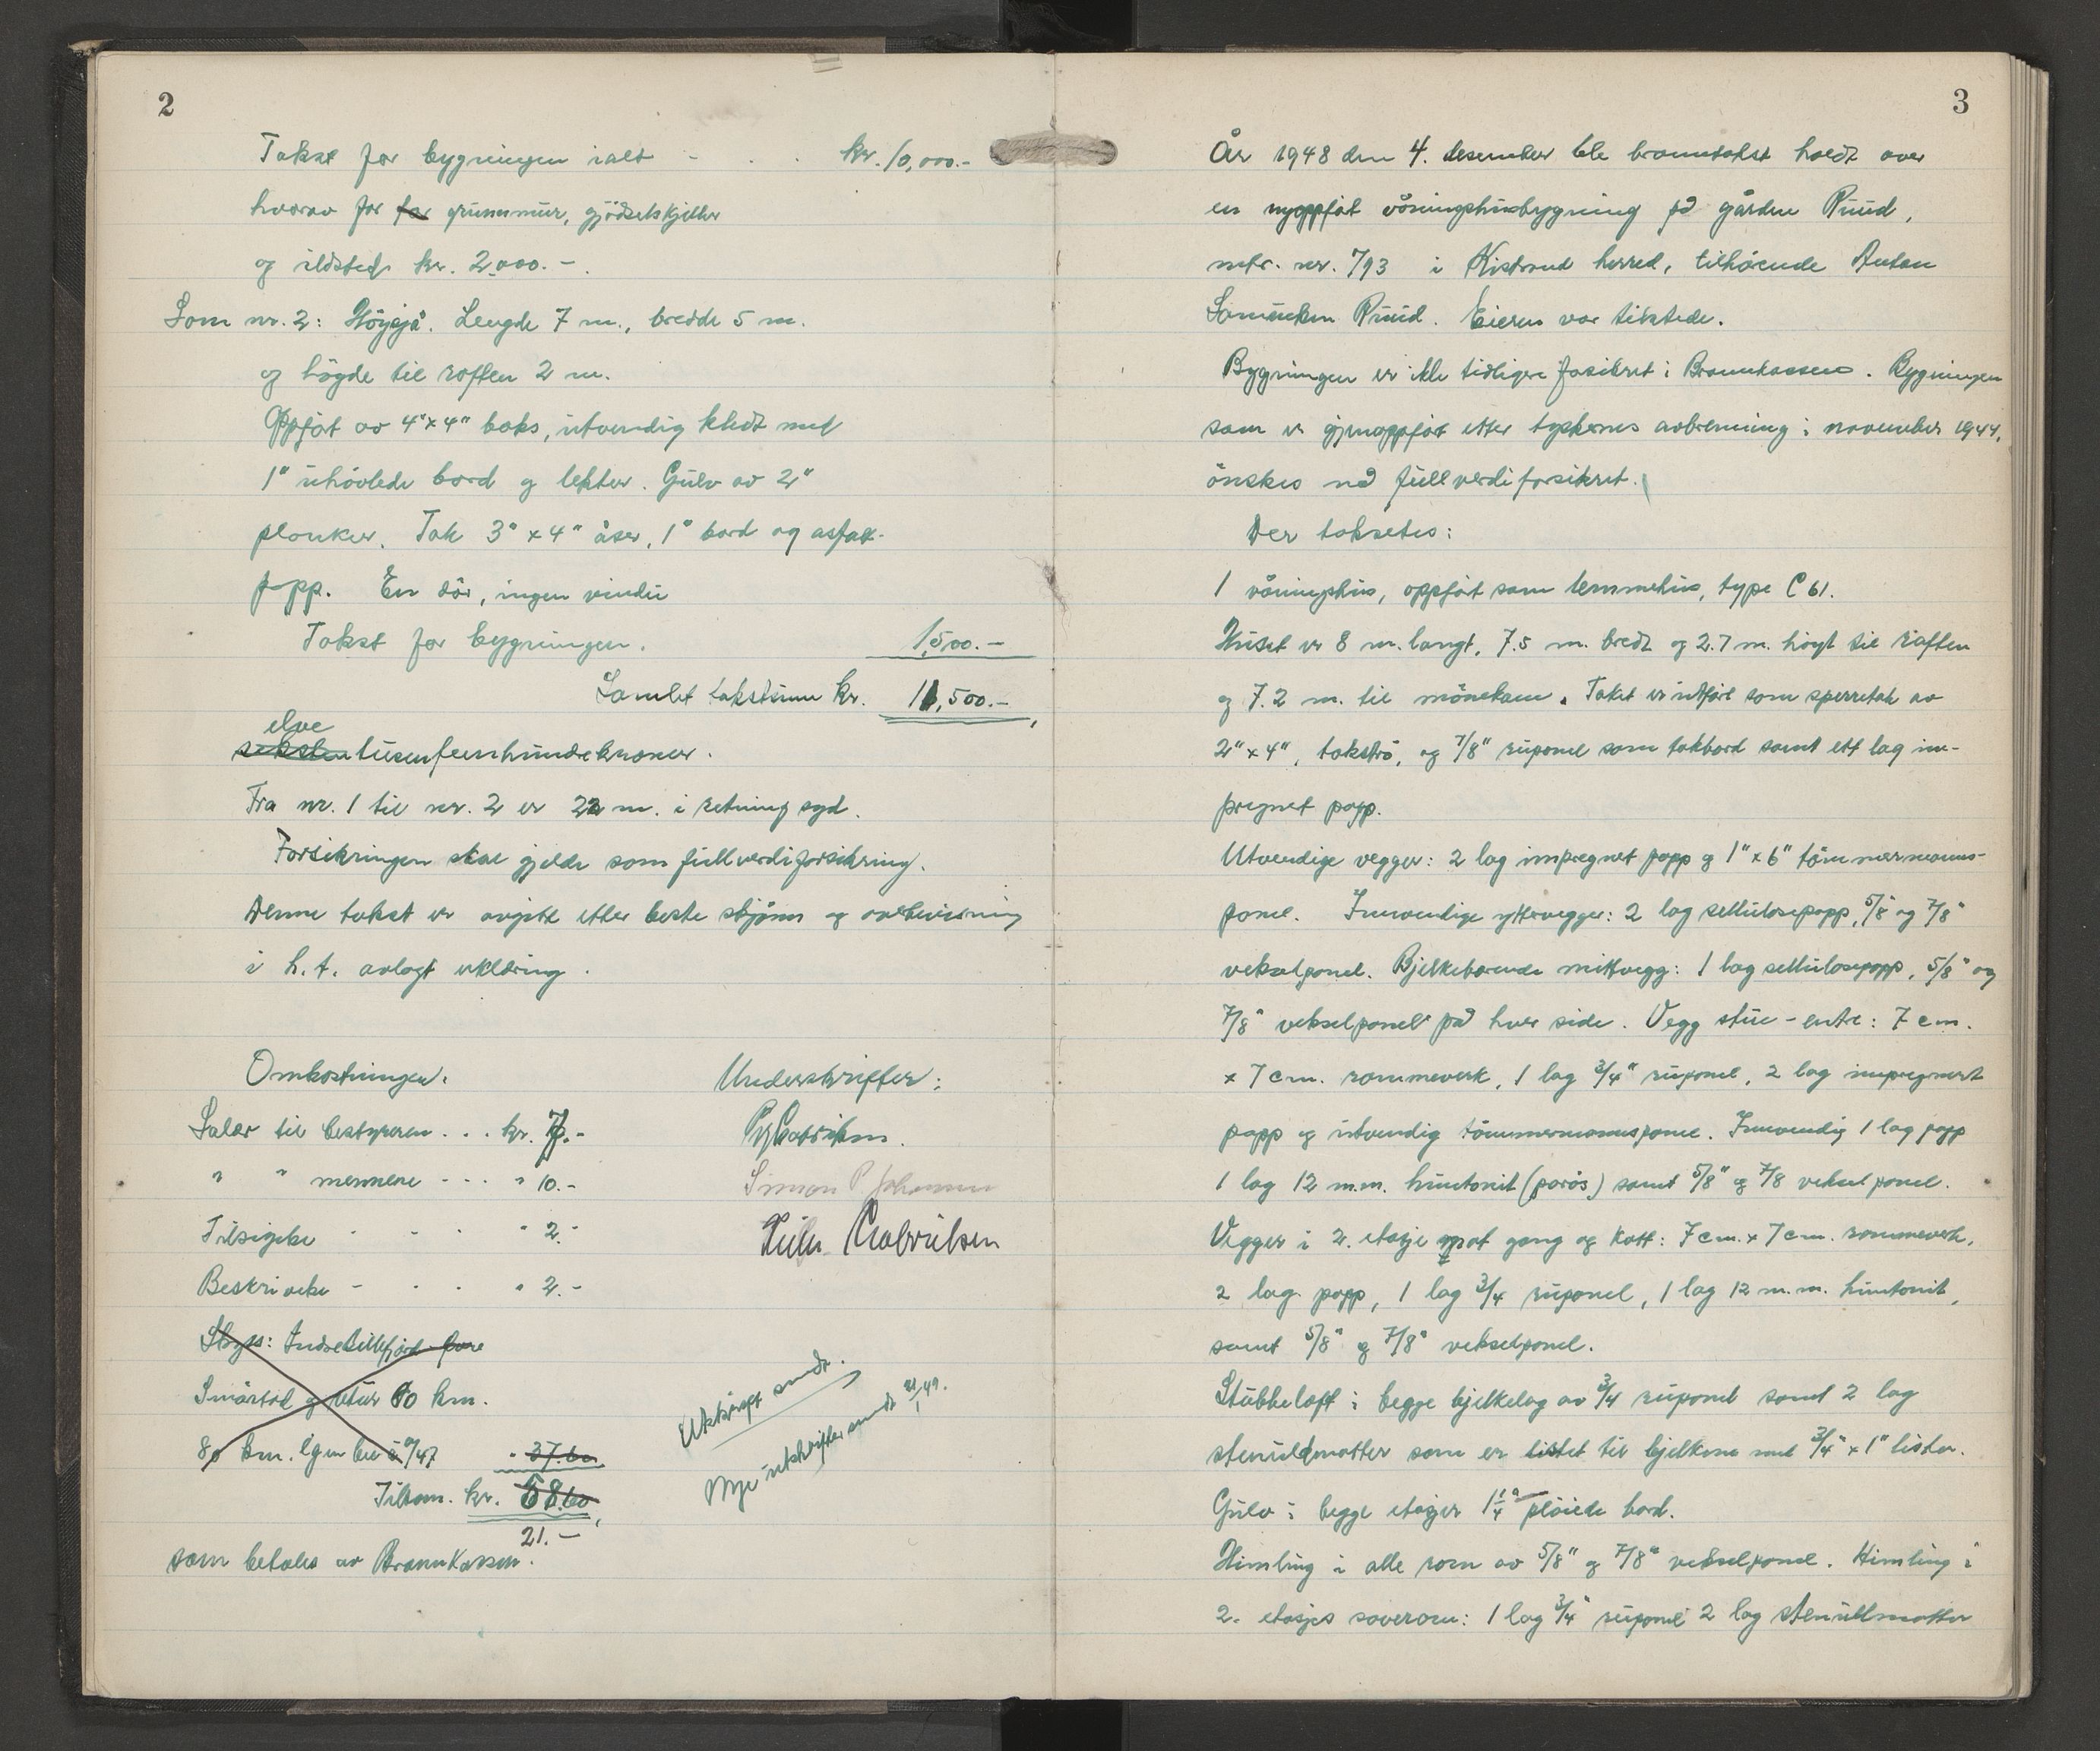 2
Takst for bygningen ialt - . . kr. 10,000.-
hvorav for for grunnmur, gjødselskjeller
og ildsted kr. 2,000.-
Som nr. 2: Höysjå. Lengde 7 m., bredde 5 m.
og högde til röften 2 m.
Oppfört av 4"x4" boks, utvendig kledt med
1" uhövlede bord og lekter. Gulv av 2"
planker. Tak 3"x4" åser, 1" bord og asfalt-
papp. En dör, ingen vindu
Takst for bygningen. 1,500.-
Samlet takstsum kr. 11,500.-
elve
seksten tusenfemhundrekroner.
Fra nr. 1 til nr. 2 er 22 m. i retning syd.
Forsikringen skal gjelde som fullverdiforsikring.
Denne takst er avgitt etter beste skjönn og overbevisning
i h.t. avlagt erklæring.
Omkostninger: Underskrifter:
Salær til bestyreren . . . kr. 7.-
" " mennene - - - " 10.-
Simon P Johansen
Tilsigelse - - - " 2.-
Beskrivelse - . . " 2.-
Skyss: Indre Billefjord
Smörstad og retur 60 km.
80 km. " 37.60
Tilsam. kr. 58.60
21.-
som betales av Brannkassen.
Utskrift sendt.
Nye utskrifter sendt 21/1 49.
3
År 1948 den 4. desember ble branntakst holdt over
en nyoppfört våningshusbygning på gården Ruud,
mtr. nr. 7/93 i Kistrand herred, tilhörende Anton
Samuelsen Ruud. Eieren var tilstede.
Bygningen er ikke tidligere forsikret i Brannkassen. Bygningen
som er gjenoppfört etter tyskernes avbrenning i november 1944,
önskes nå fullverdiforsikret.
Der taksetes:
1 våningshus, oppfört som lemmehus, type C 61.
Huset er 8 m. langt, 7.5 m. bredt og 2.7 m. höyt til röften
og 7.2 m. til mönekam. Taket er utfört som sperretak av
2"x4", takströ, og 7/8" rupanel som takbord samt ett lag im-
pregnet papp.
Utvendige vegger: 2 lag impregnet papp og 1"x6" tömmermanns-
panel. Innvendige yttervegger: 2 lag sellulosepapp, 5/8" og 7/8"
vekselpanel. Bjelkebærende midtvegg: 1 lag sellulosepapp, 5/8" og
7/8" vekselpanel på hver side. Vegg stue - entre: 7 cm.
x 7 cm. rammeverk, 1 lag 3/4" rupanel, 2 lag impregnert
papp og utvendig tömmermannspanel. Innvendig 1 lag papp
1 lag 12 m.m. huntonit (porös) samt 5/8" og 7/8 vekselpanel.
Vegger i 2. etasje mot gang og kott: 7 cm. x 7 cm. rammeverk,
2 lag papp, 1 lag 3/4 rupanel, 1 lag 12 m.m. huntonit,
samt 5/8" og 7/8" vekselpanel.
Stubbeloft i begge bjelkelag av 3/4 rupanel samt 2 lag
stenullmatter som er listet til bjelkene med 3/4"x1" lister.
Gulv i begge etasjer 1 1/4" plöiede bord.
Himling i alle rom av 5/8" og 7/8" vekselpanel. Himling i
2. etasjes soverom: 1 lag 3/4" rupanel 2 lag stenullmatter